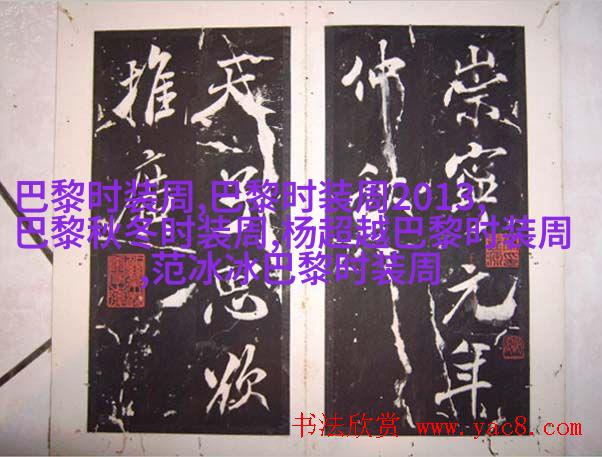 崇寧元年
仲秋
天思欲
推
巴黎时装周,巴黎时装周2013,
巴黎秋冬时装周,杨超越巴黎时装周
,范冰冰巴黎时装周
书法欣赏 www.yac8.com